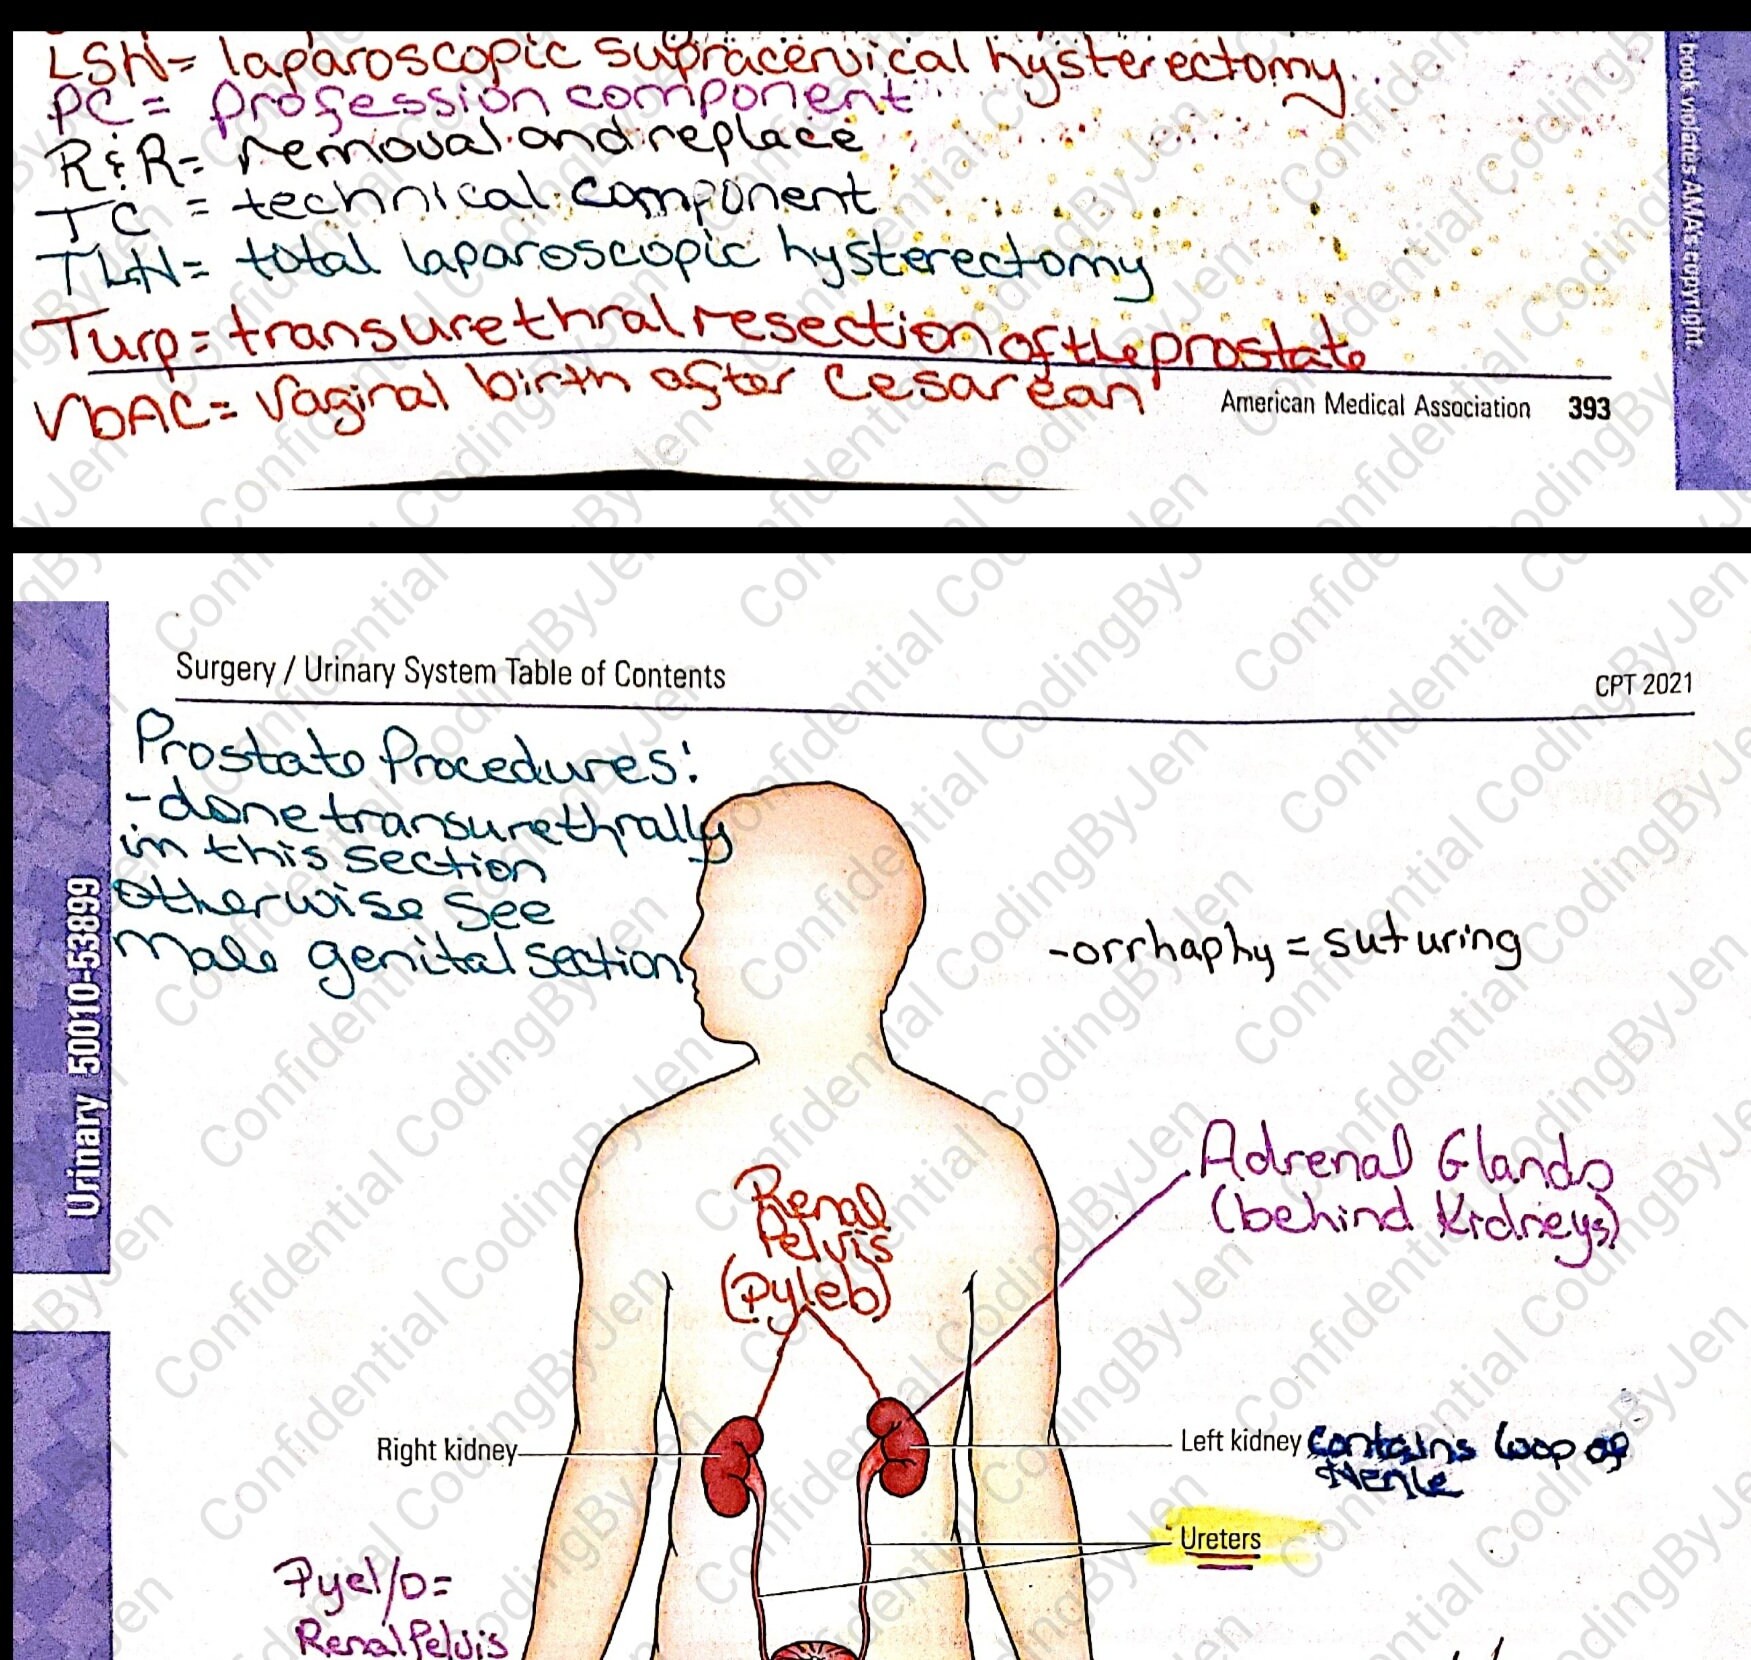 LSH= laparoscopic supracervical hysterectomy
PC= Profession component
R&R= removal and replace
TC = technical component
TLH= total laparoscopic hysterectomy
Turp= transurethral resection of the prostate
VbAC= Vaginal birth after Cesarean
American Medical Association 393
book violates AMA's copyright.
Surgery / Urinary System Table of Contents
CPT 2021
Prostate Procedures:
-done transurethrally
in this section
otherwise see
Male genital section
-orrhaphy = suturing
Urinary 50010-53899
Adrenal Glands
(behind Kidneys)
Renal
Pelvis
(Pyleb)
Right kidney
Left kidney contains loop of
Henle
Ureters
Pyel/o=
Renal Pelvis
Confidential CodingByJen